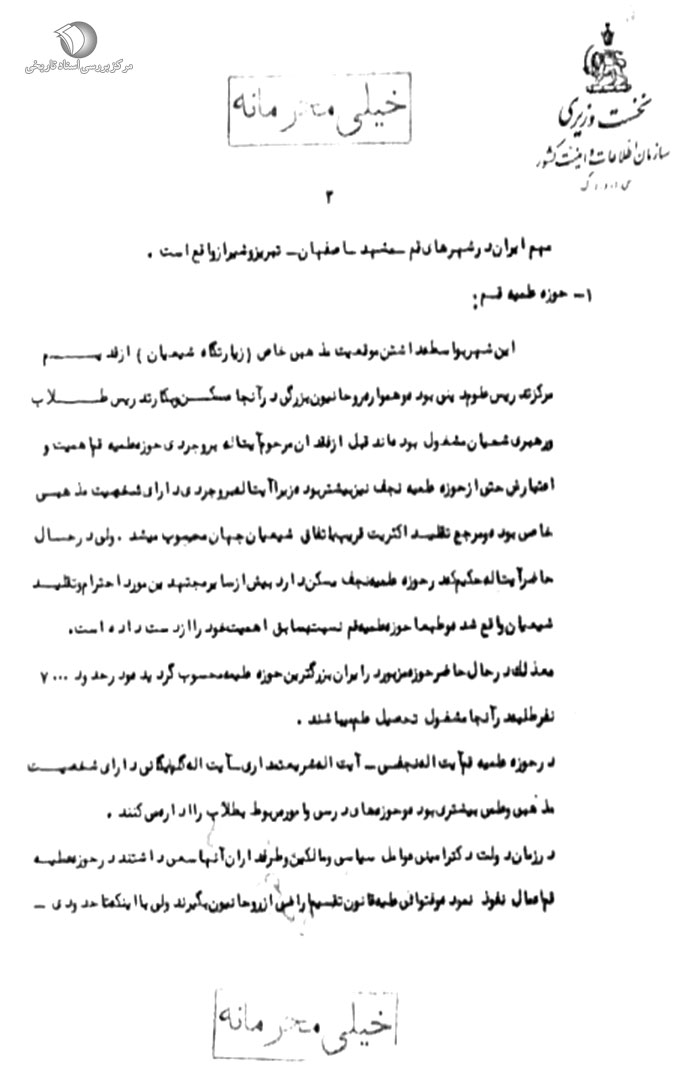 مرکز بررسی اسناد تاریخی
خیلی محرمانه
نخست وزیری
سازمان اطلاعات و امنیت کشور
س.ا.و.ا.ک
۳
مهم ایران در شهرهای قم ـ مشهد ـ اصفهان ـ تبریز و شیراز واقع است .
۱- حوزه علمیه قم :
این شهر بواسطه داشتن موقعیت مذهبی خاص (زیارتگاه شیعیان) از قدیم
مرکز تدریس علوم دینی بوده و همواره روحانیون بزرگی در آنجا مسکن و بکار تدریس طلاب
و رهبری شیعیان مشغول بوده اند قبل از فقدان مرحوم آیت اله بروجردی حوزه علمیه قم اهمیت و
اعتبارش حتی از حوزه علمیه نجف نیز بیشتر بوده زیرا آیت اله بروجردی دارای شخصیت مذهبی
خاص بوده و مرجع تقلید اکثریت قریب باتفاق شیعیان جهان محسوب میشد . ولی در حال
حاضر آیت اله حکیم که در حوزه علمیه نجف مسکن دارد بیش از سایر مجتهدین مورد احترام و تقلید
شیعیان واقع شده و طبعا حوزه علمیه قم نسبت بسابق اهمیت خود را از دست داده است.
معذلک در حال حاضر حوزه مزبور در ایران بزرگترین حوزه علمیه محسوب گردیده و در حدود ۷۰۰۰
نفر طلبه در آنجا مشغول تحصیل علم میباشند .
در حوزه علمیه قم آیت اله نجفی ـ آیت اله شریعتمداری ـ آیت اله گلپایگانی دارای شخصیت
مذهبی و علمی بیشتری بوده و حوزه های درسی و امور مربوط بطلاب را اداره می کنند .
در زمان دولت دکتر امینی عوامل سیاسی و مالکین و طرفداران آنها سعی داشتند در حوزه علمیه
قم اعمال نفوذ نموده و فتوائی علیه قانون تقسیم اراضی از روحانیون بگیرند ولی با اینکه تا حدودی ـ
خیلی محرمانه